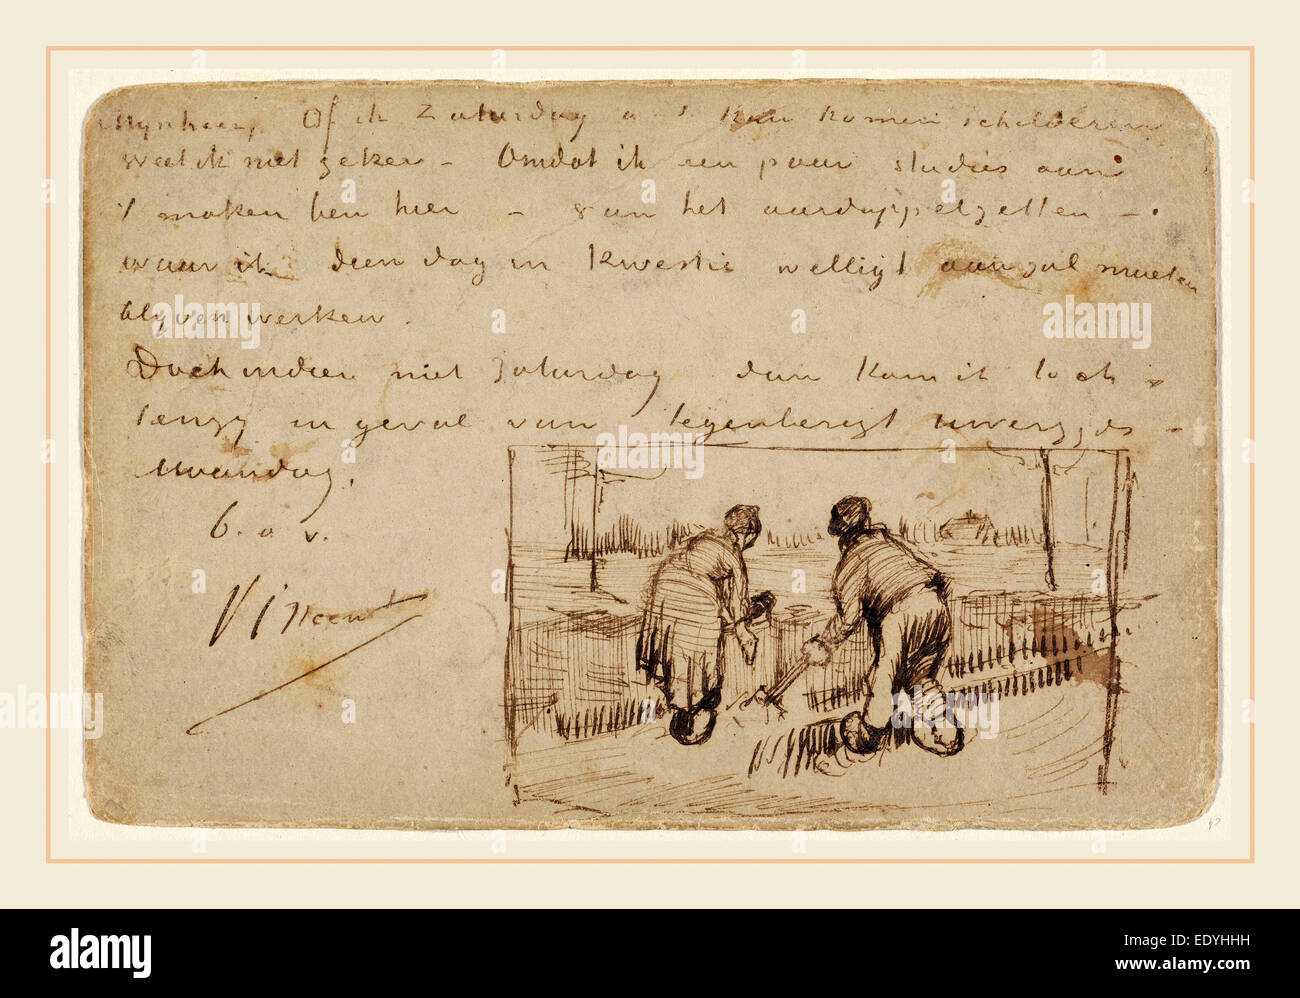 Mynheer, Of ik Zaturdag a s kan komen schilderen
weet ik niet zeker – Omdat ik een paar studies aan
't maken ben hier – van het aardappelzetten –
waar ik dien dag in kwestie welligt aan zal moeten
blyven werken.
Doch indien niet Zaturdag dan kom ik toch –
tenzy in geval van tegenberigt uwerzyds –
Maandag.
b. a. v.
Vincent
alamy stock photo
alamy
Image ID: EDYHHH
www.alamy.com